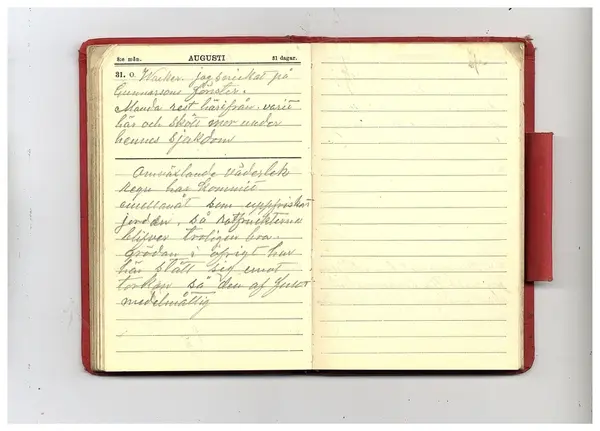 8:e mån. AUGUSTI 31 dagar.
31. O. Wacker. jag på
Gunnarsons fönster.
Manda rest härifrån varit
här och skött mor under
hennes sjukdom
Omväxlande väderlek
regn har kommit
emellanåt som uppfriskat
jorden, så rotfrukterna
blifver troligen bra.
Grödan i öfrigt har
här stått sig emot
torkan så den af
medelmåttig